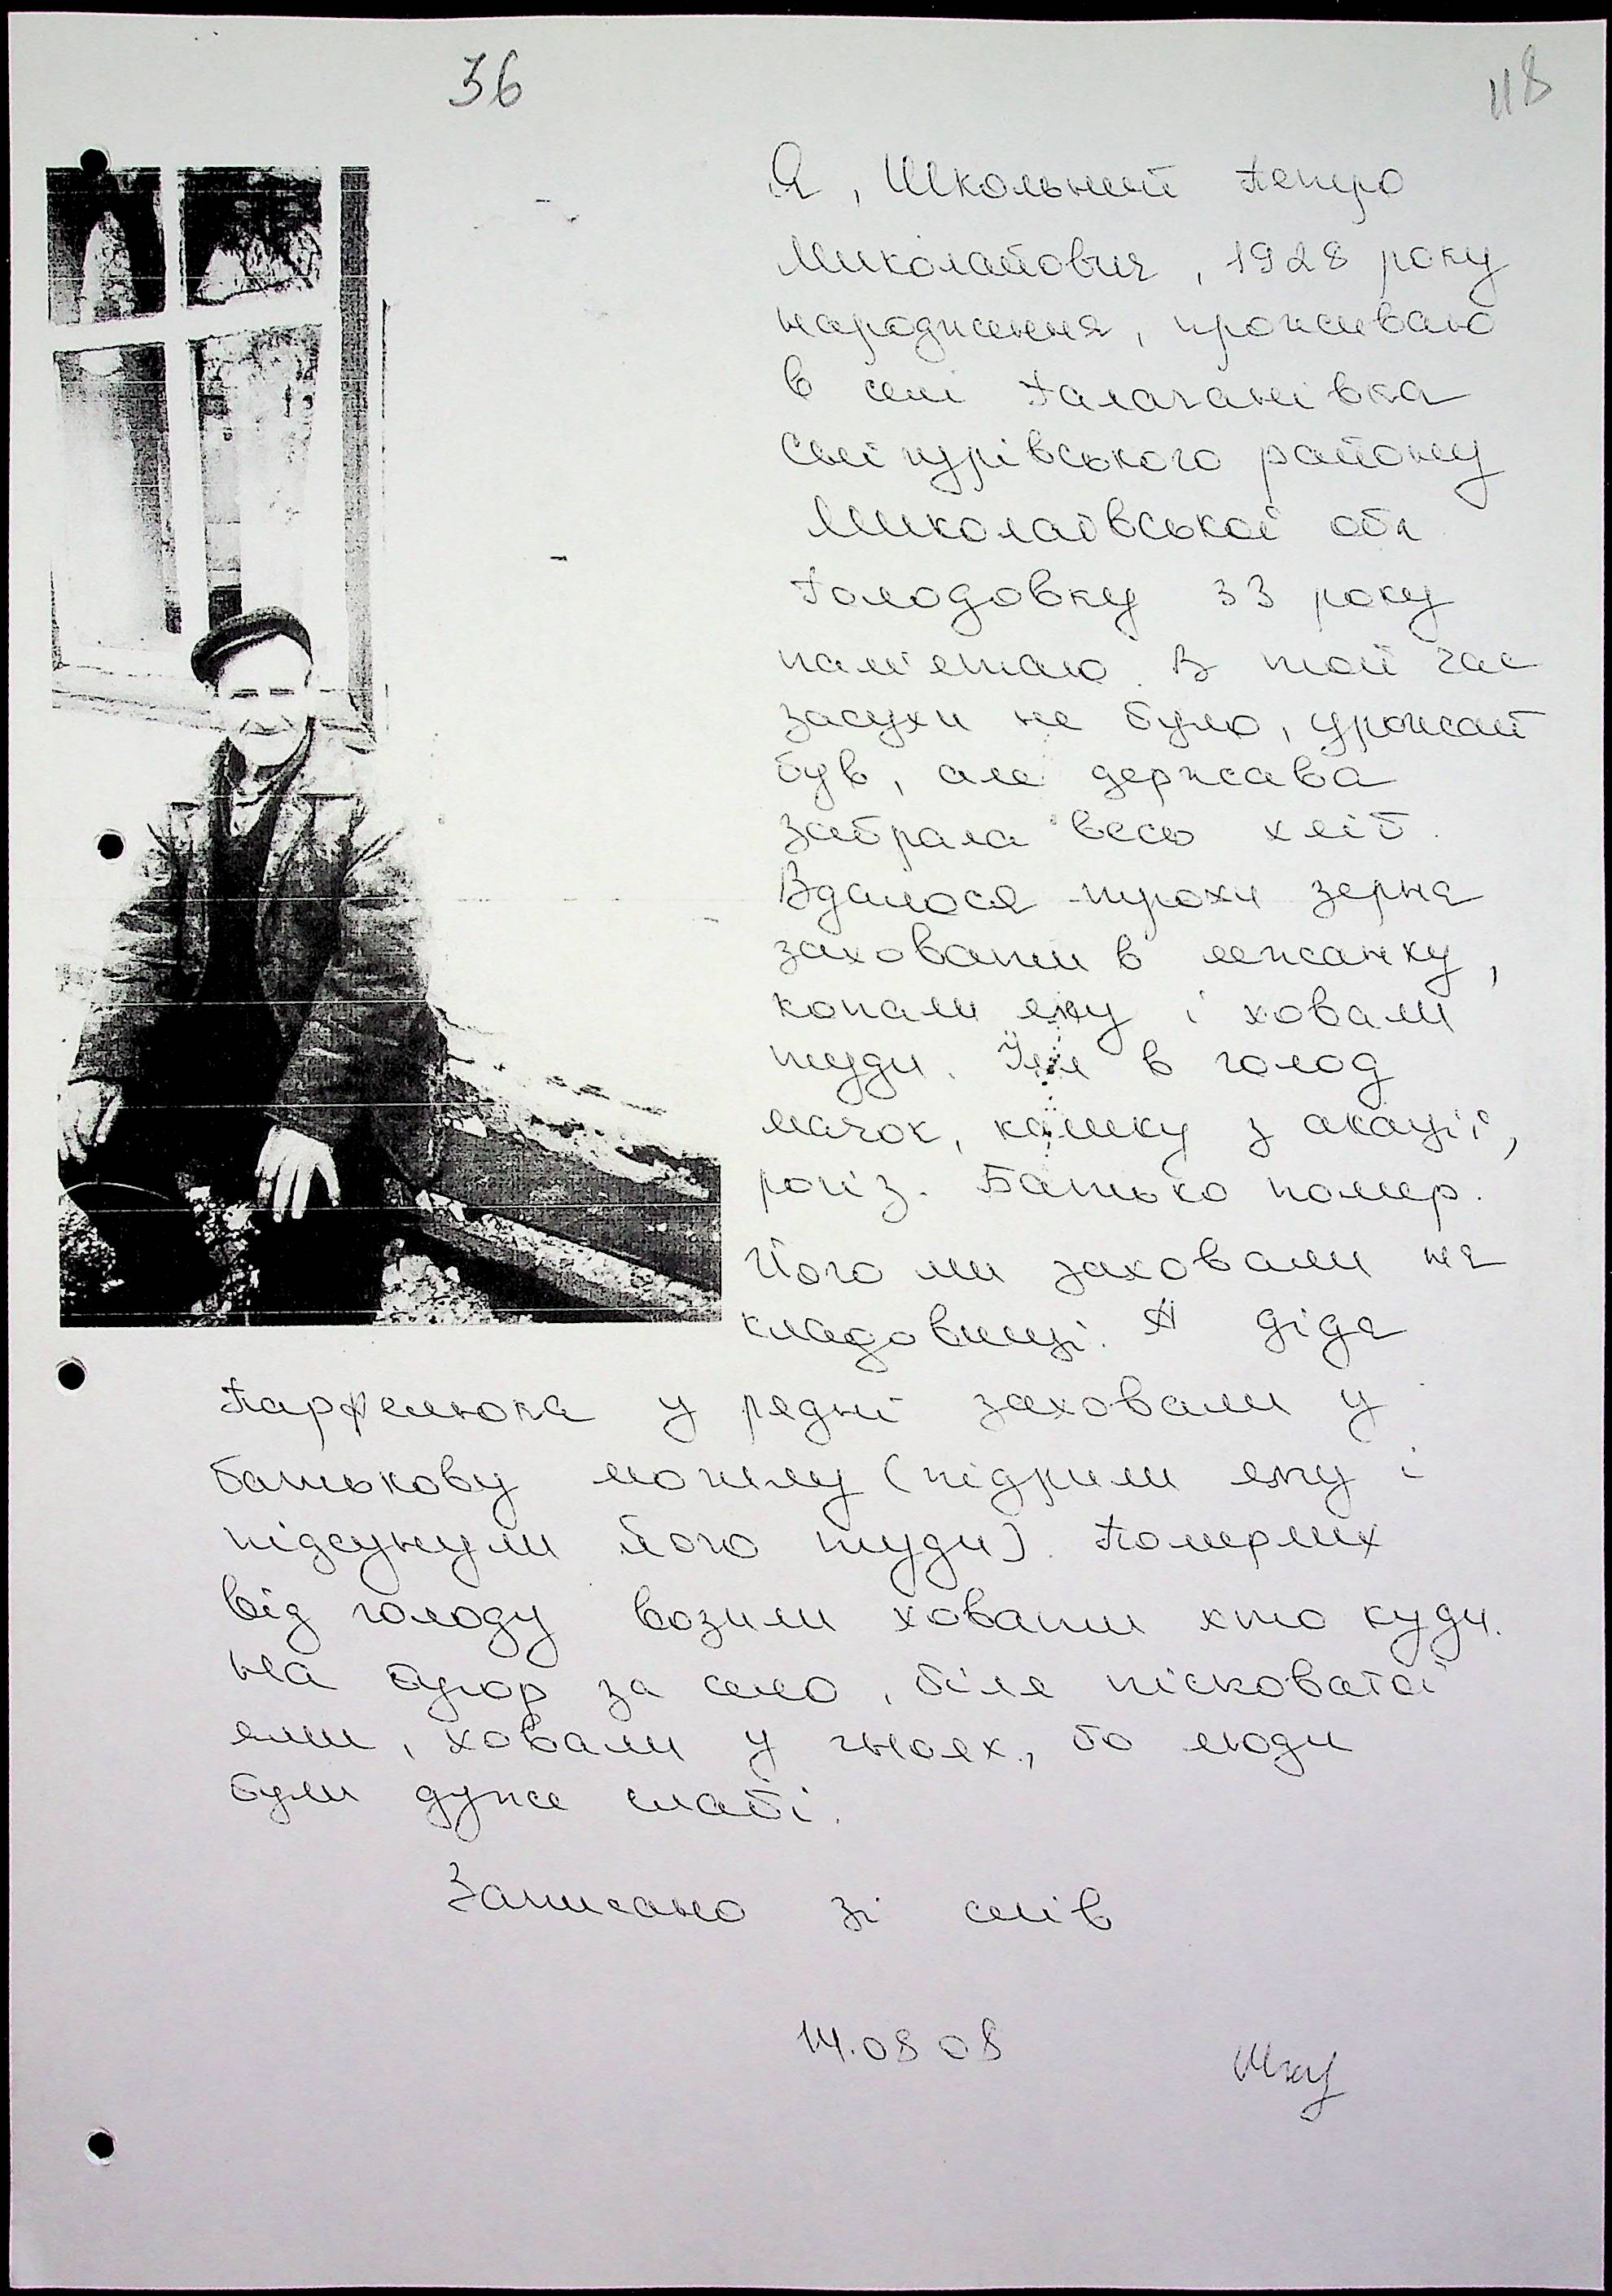 36
118
Я, Школьний Петро
Миколайович, 1928 року
народження, проживаю
в селі Галаганівка
Снігурівського району
Миколаївської обл
Голодовку 33 року
пам'ятаю. В той час
засухи не було, урожай
був, але держава
забрала весь хліб.
Вдалося трохи зерна
заховати в лежанку,
копали яму і ховали
туди. Їли в голод
мачок, кашку з акації,
рогіз. Батько помер.
Його ми заховали на
кладовищі. А діда
Парфенюка у рядні заховали у
батькову могилу (підрили яму і
підсунули його туди). Померлих
від голоду возили ховати хто куди.
на бугор за село, біля пісковатої
ями, ховали у гноях, бо люди
були дуже слабі.
Записано зі слів
14.08 08